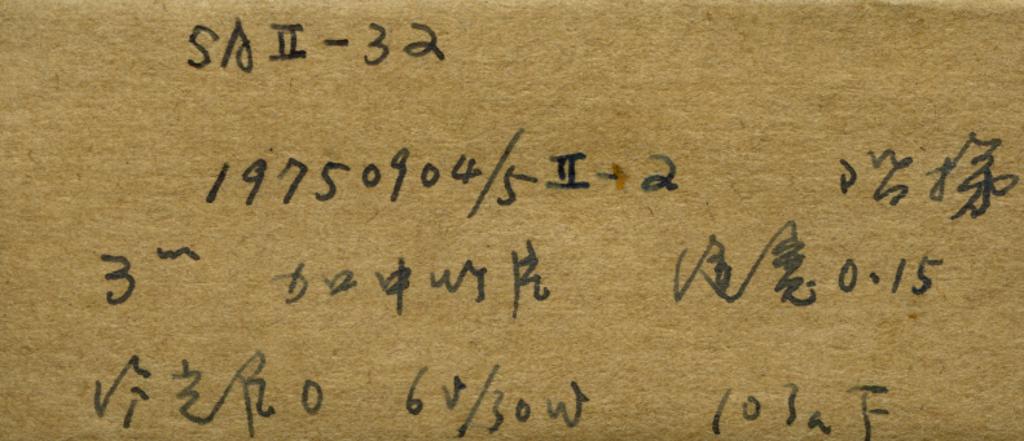 SA II-32
19750904/5 II-2 阶梯
3m 加中性片 缝宽0.15
冷光食0 6V/30W 103a F